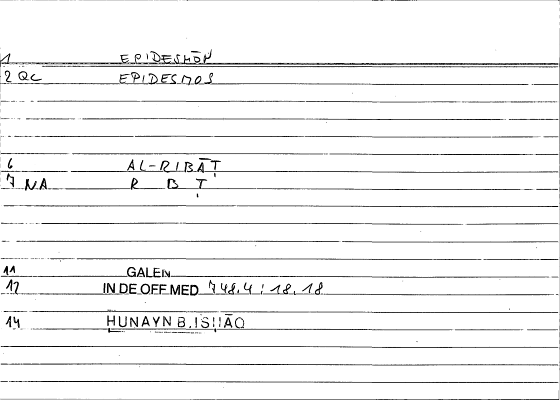 1 EPIDESMŌN
2 QC EPIDESMOS
6 AL-RIBĀṬ
7 NA R B Ṭ
11 GALEN
12 IN DE OFF MED 748.4 : 18.18
14 HUNAYN B.ISḤĀQ